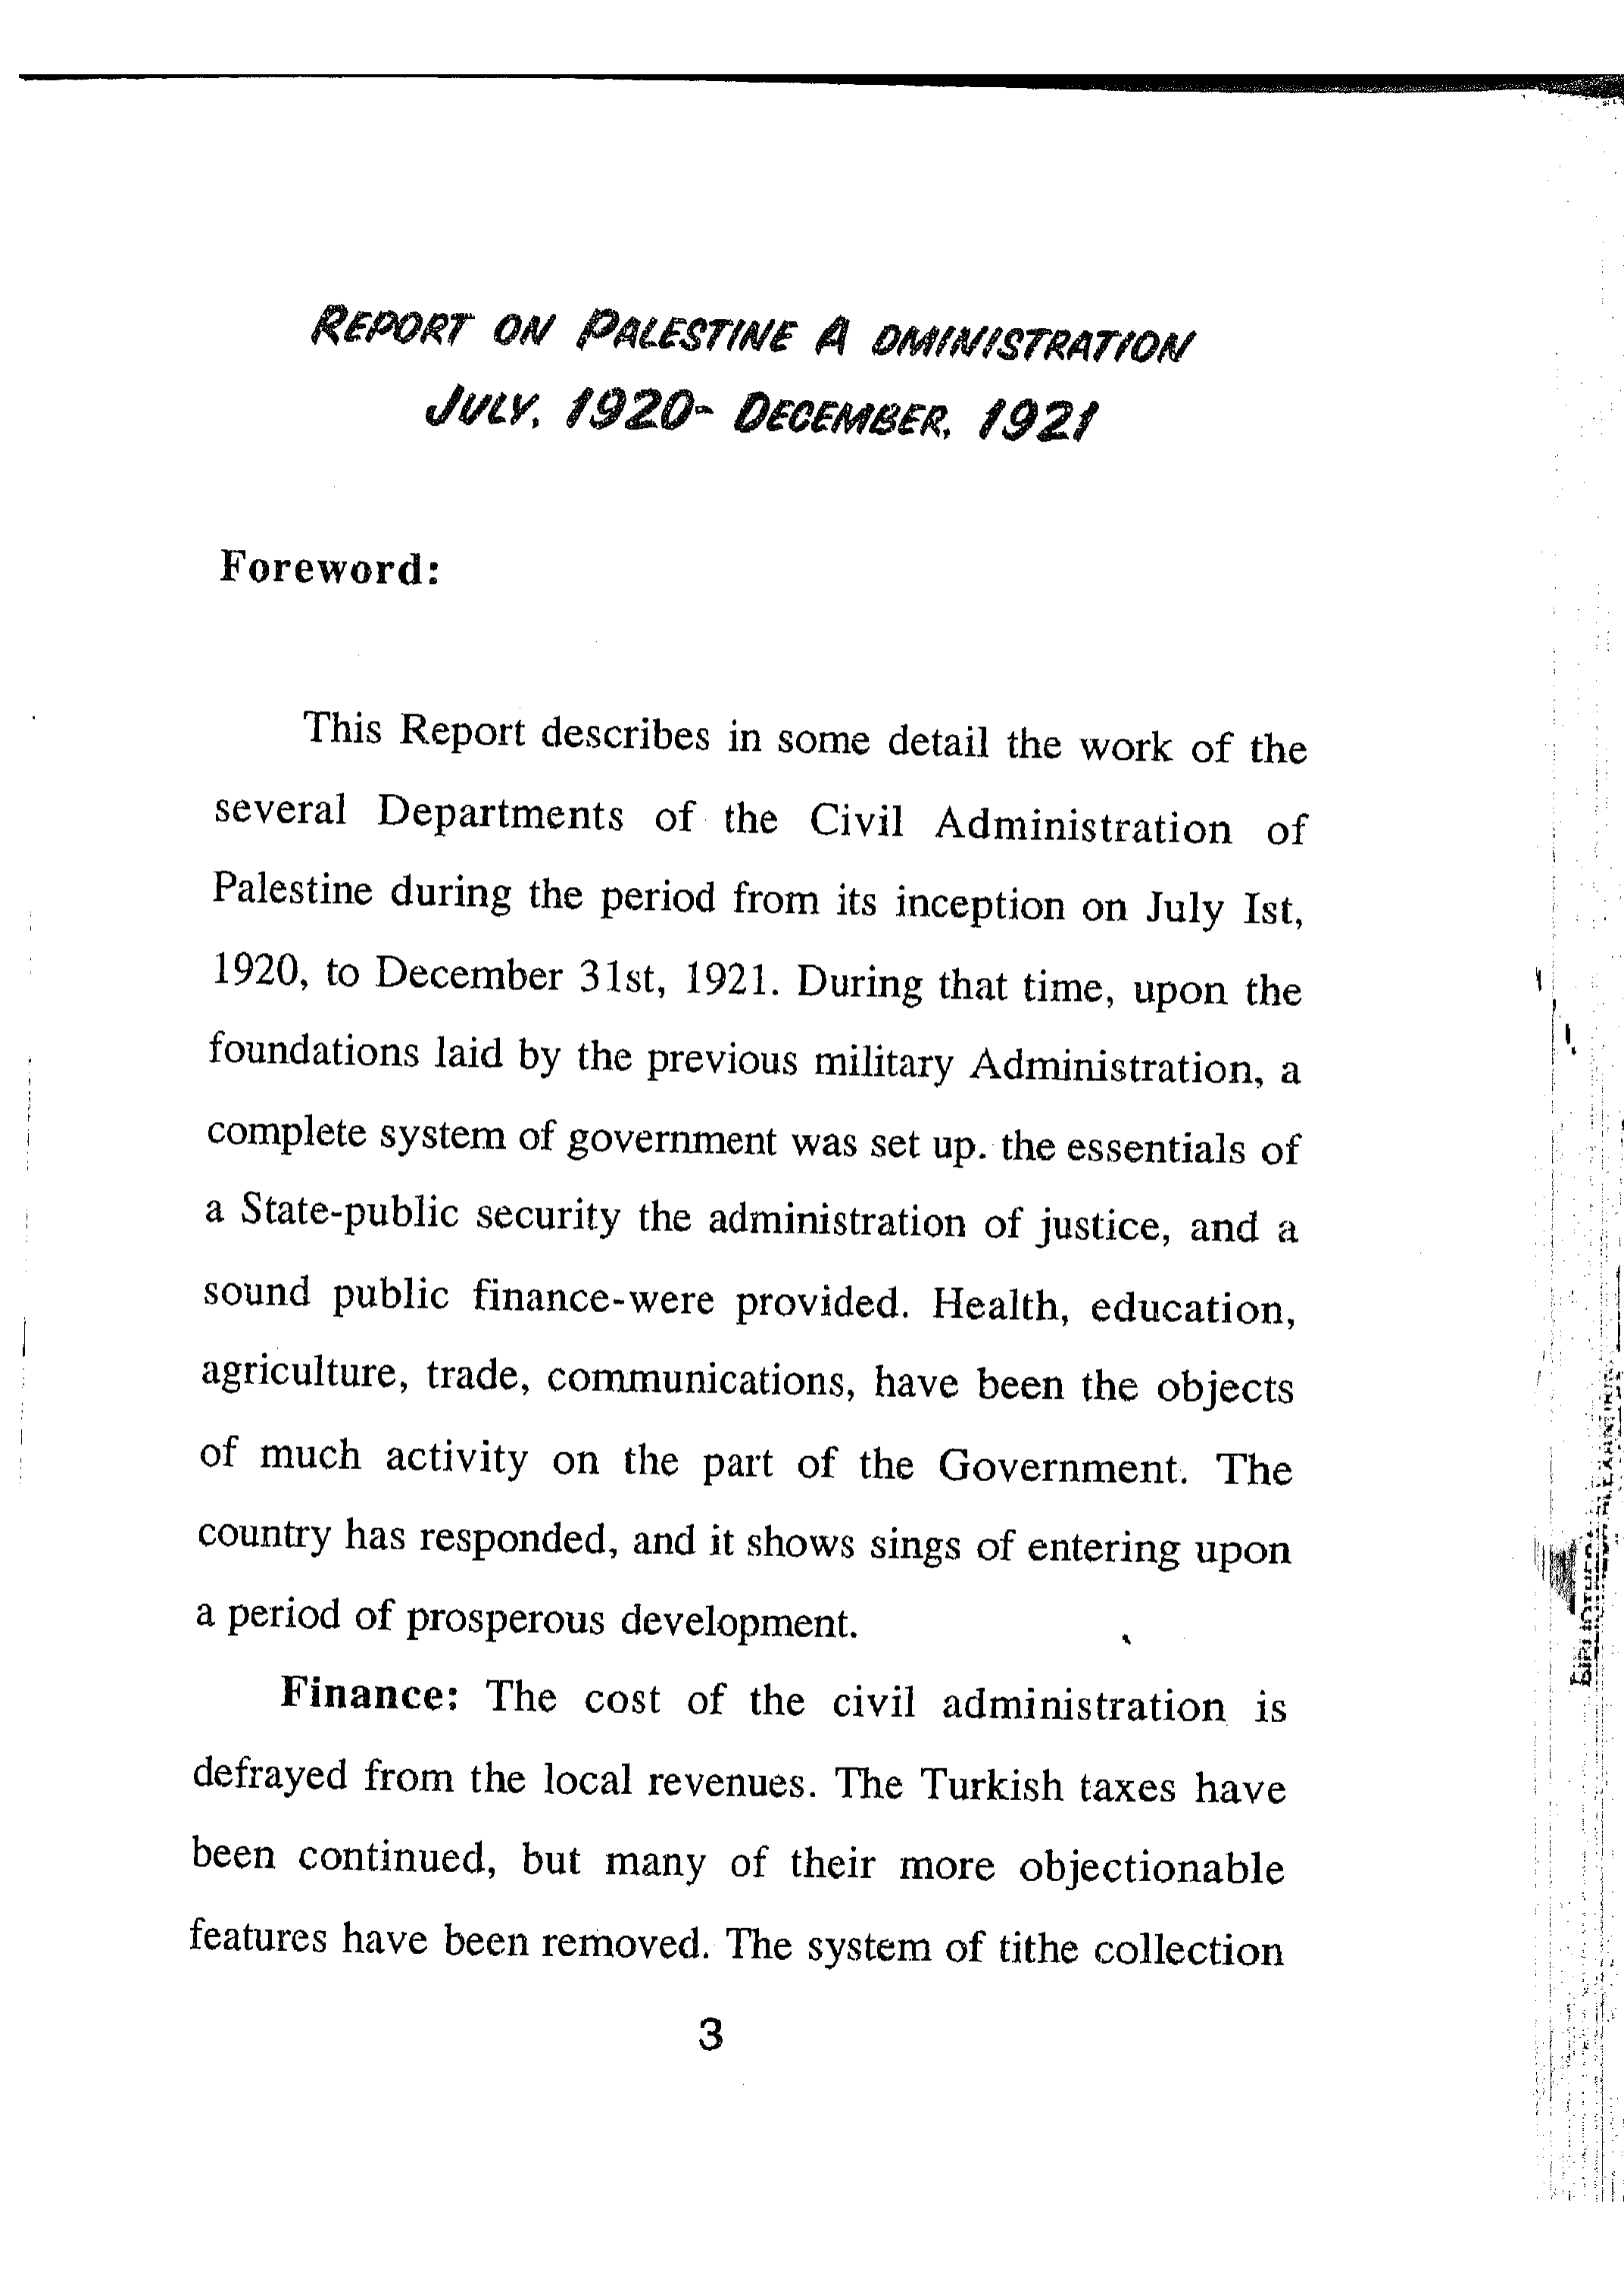 REPORT ON PALESTINE A DMINISTRATION
JULY, 1920- DECEMBER, 1921
Foreword:
This Report describes in some detail the work of the
several Departments of the Civil Administration of
Palestine during the period from its inception on July Ist,
1920, to December 31st, 1921. During that time, upon the
foundations laid by the previous military Administration, a
complete system of government was set up. the essentials of
a State-public security the administration of justice, and a
sound public finance-were provided. Health, education,
agriculture, trade, communications, have been the objects
of much activity on the part of the Government. The
country has responded, and it shows sings of entering upon
a period of prosperous development.
Finance: The cost of the civil administration is
defrayed from the local revenues. The Turkish taxes have
been continued, but many of their more objectionable
features have been removed. The system of tithe collection
3